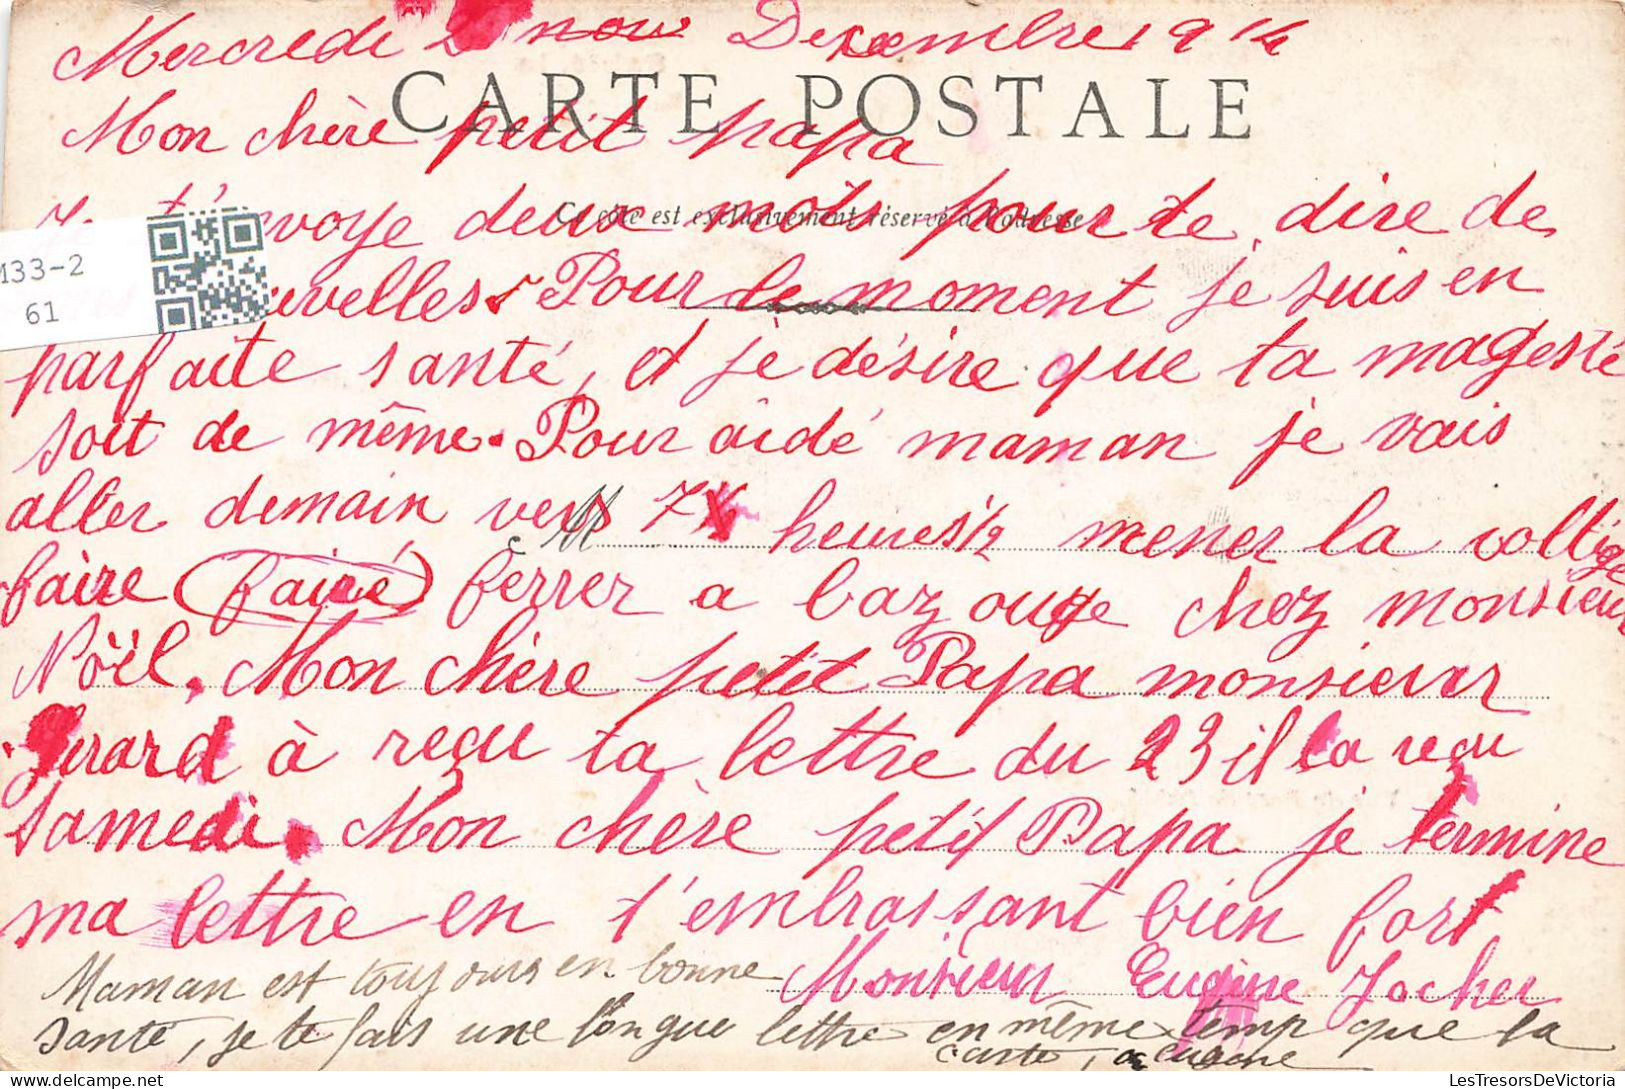 Mercredi 2 nov Decembre 1914
CARTE POSTALE
Mon chère petit papa
t'envoye deux mots pour te dire de
Ce côté est exclusivement réservé à l'adresse
M33-2
61
uvelles. Pour le moment je suis en
parfaite santé, et je désire que ta magesté
soit de même. Pour aidé maman je vais
aller demain vers 7 heures 1/2 mener la voltige
M
faire faire ferrer a bazouge chez monsieur
Nöël. Mon chère petit Papa monsieur
Girard à reçu ta lettre du 23 il la reçu
Samedi. Mon chère petit Papa je termine
ma lettre en t'embrassant bien fort
Monsieur Eugène Jocher
Maman est toujours en bonne
santé, je te fais une longue lettre en même temp que la
carte, a Eugene
LesTresorsDeVictoria